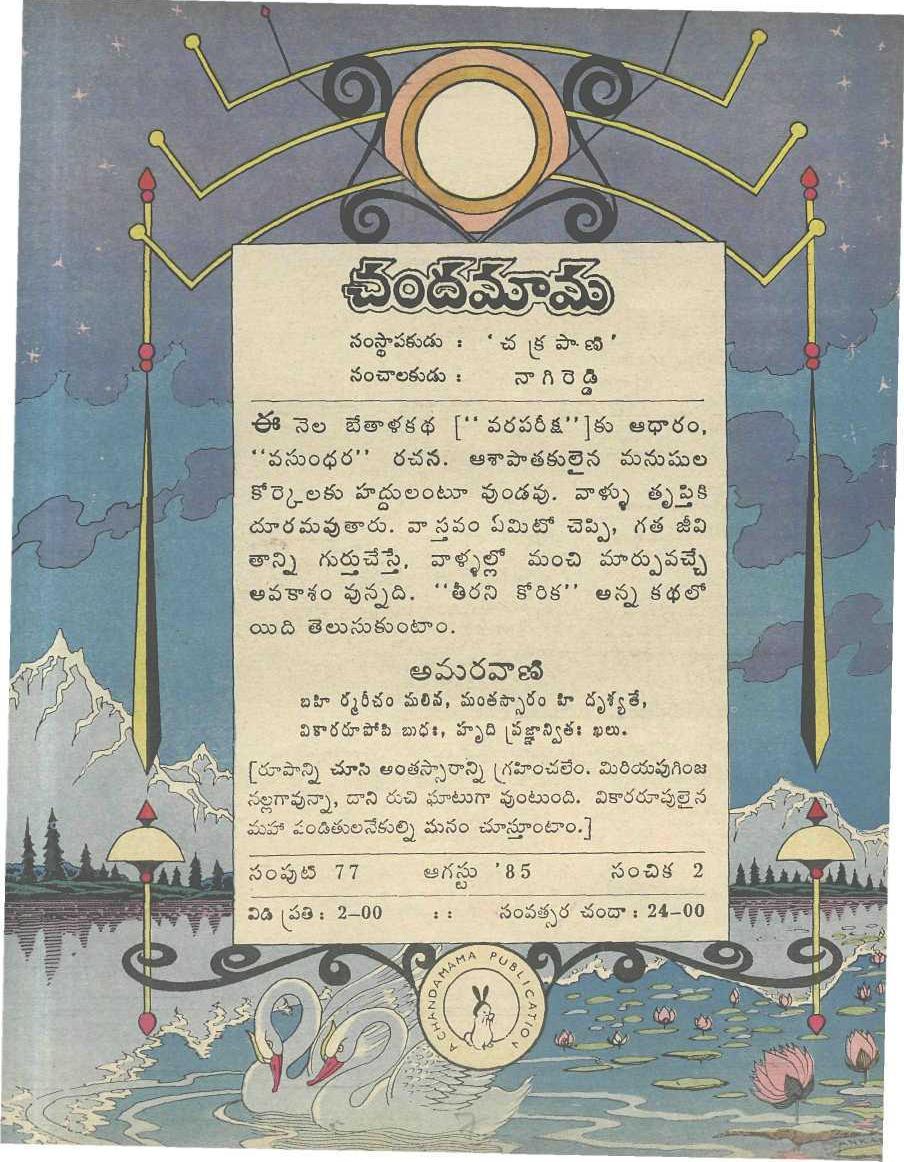 చందమామ
సంస్థాపకుడు : 'చక్రపాణి'
సంచాలకుడు : నాగిరెడ్డి
ఈ నెల బేతాళకథ ["వరపరీక్ష"]కు ఆధారం,
"వసుంధర" రచన. ఆశాపాతకులైన మనుషుల
కోర్కెలకు హద్దులంటూ వుండవు. వాళ్ళు తృప్తికి
దూరమవుతారు. వాస్తవం ఏమిటో చెప్పి, గత జీవి
తాన్ని గుర్తుచేస్తే, వాళ్ళల్లో మంచి మార్పువచ్చే
అవకాశం వున్నది. "తీరని కోరిక" అన్న కథలో
యిది తెలుసుకుంటాం.
అమరవాణి
బహి ర్మరీచం మలివ, మంతస్సారం హి దృశ్యతే,
వికారరూపోపి బుధః, హృది ప్రజ్ఞాన్వితః ఖలు.
[రూపాన్ని చూసి అంతస్సారాన్ని గ్రహించలేం. మిరియపుగింజ
నల్లగావున్నా, దాని రుచి ఘాటుగా వుంటుంది. వికారరూపులైన
మహా పండితులనేకుల్ని మనం చూస్తూంటాం.]
సంపుటి 77 ఆగస్టు '85 సంచిక 2
విడి ప్రతి : 2–00 :: సంవత్సర చందా : 24–00
A CHANDAMAMA PUBLICATION